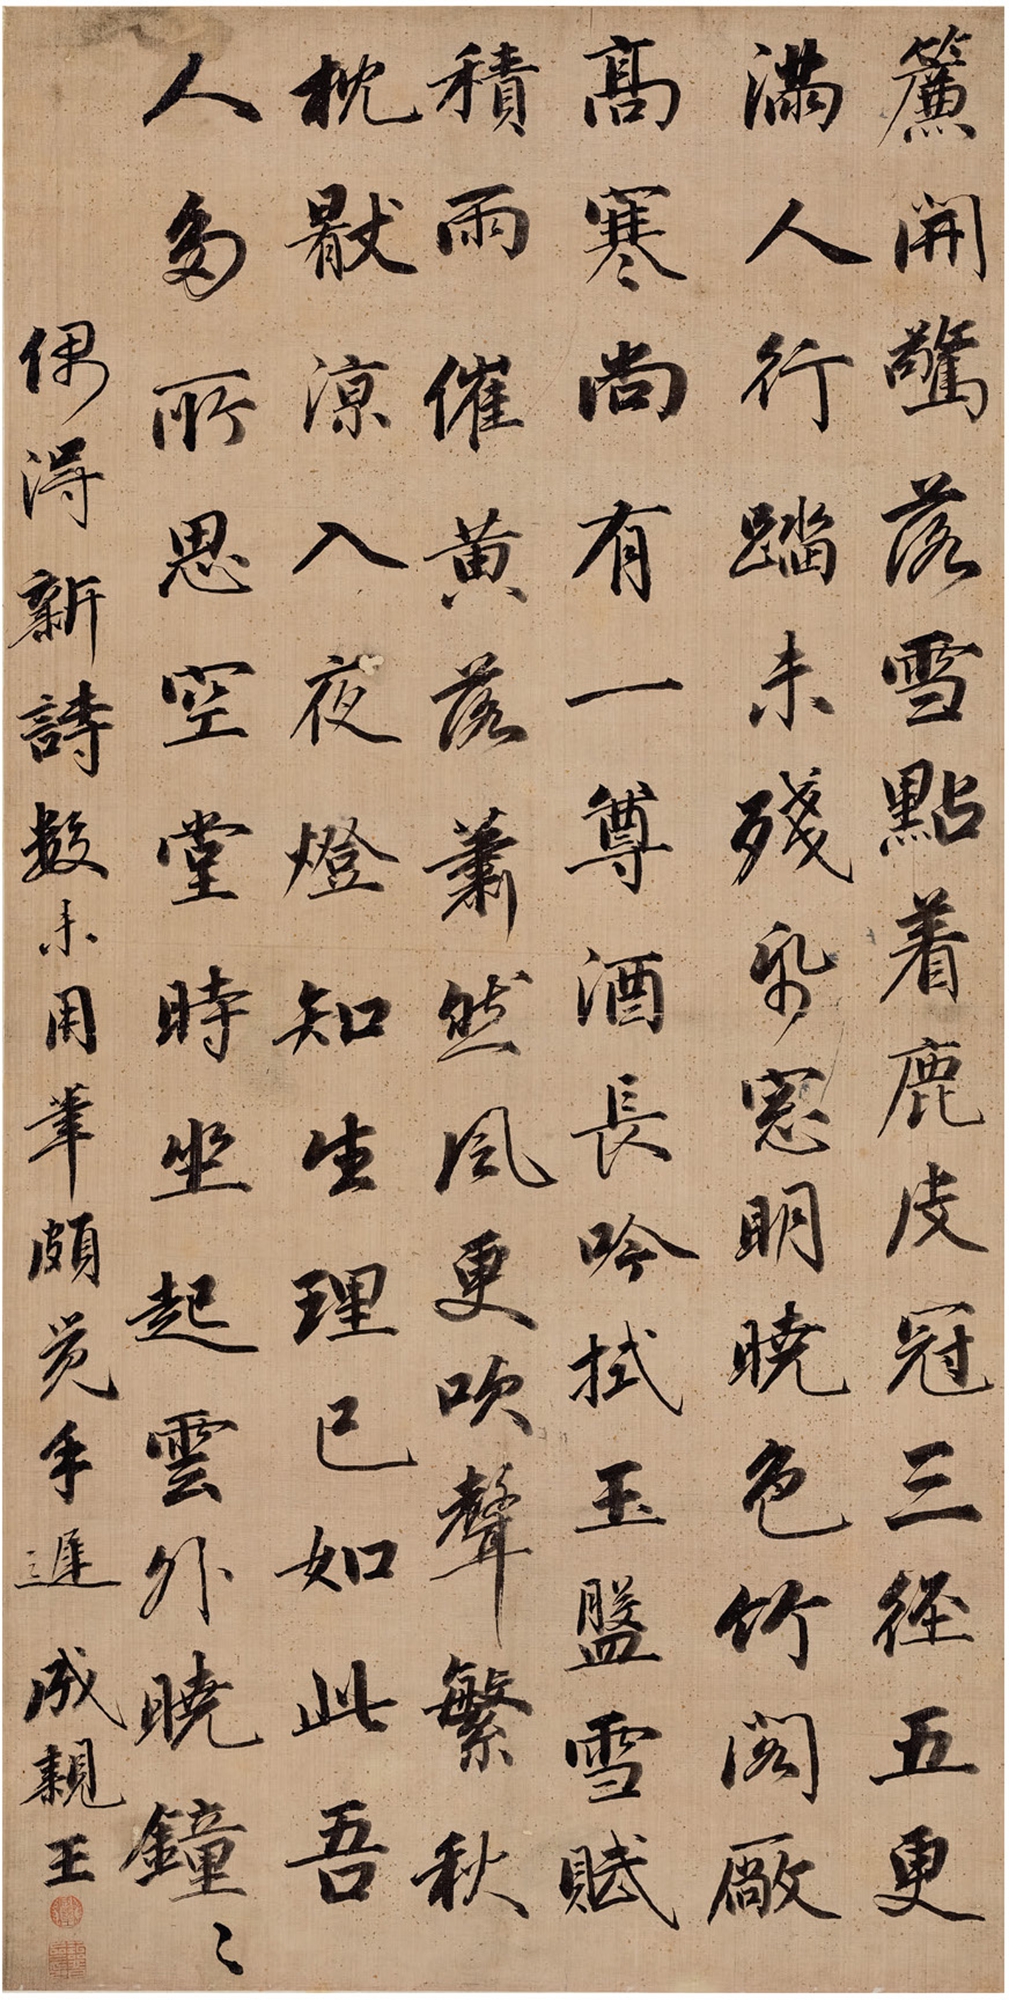 簾開驚落雪點着鹿皮冠三徑五更
滿人行踏未殘帋窓明曉色竹閣厰
高寒尚有一尊酒長吟拭玉盤雪賦
積雨催黄落蕭然風更吹聲繁秋
枕猒涼入夜燈知生理已如此吾
人多所思空堂時坐起雲外曉鐘〻
偶得新詩數未用筆頗覺手遲 成親王